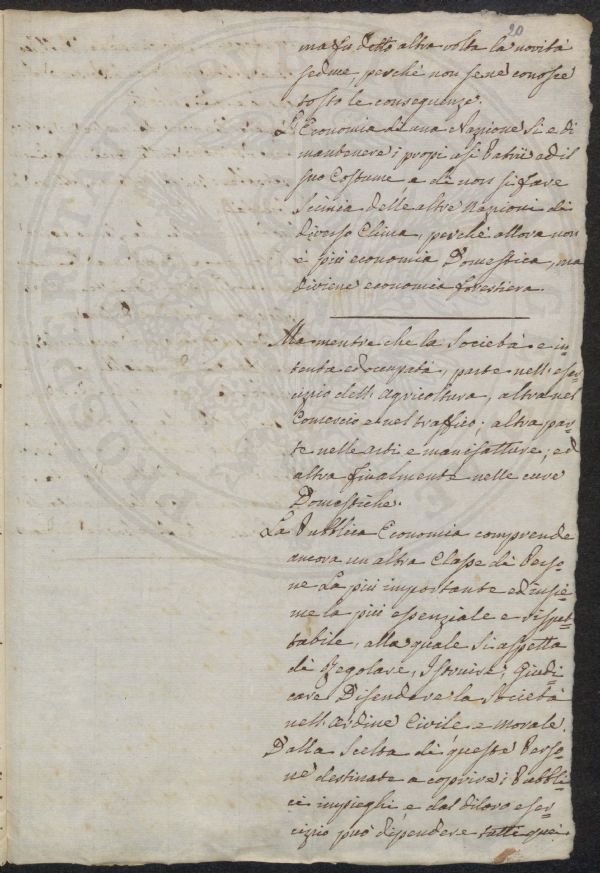 20
ma fu detto altra volta la novità
seduce, perchè non se ne conosce
tosto le conseguenze.
L'Economia di una Nazione si è di
mantenere i propi usi Patrii ed il
suo Costume e di non si fare
Scimia delle altre Nazioni di
diverso Clima, perchè allora non
è più economia Domestica, ma
diviene economia forestiera.
Ma mentre che la Società è in-
tenta ed occupata, parte nell'eser-
cizio dell'Agricoltura, altra nel
Comercio e nel traffico; altra par-
te nelle arti e manifatture, ed
altra finalmente nelle cure
Domestiche.
La Pubblica Economia comprende
ancora un altra Classe di Perso
ne La più importante ed insie-
me la più essenziale e rispet-
tabile, alla quale si aspetta
di Regolare, Istruire, Giudi-
care Difendere la Società
nell'ordine Civile e Morale.
Dalla Scelta di queste Perso-
ne destinate a coprire i Pubbli-
ci impieghi e dal di loro eser-
cizio può dependere tutti quei